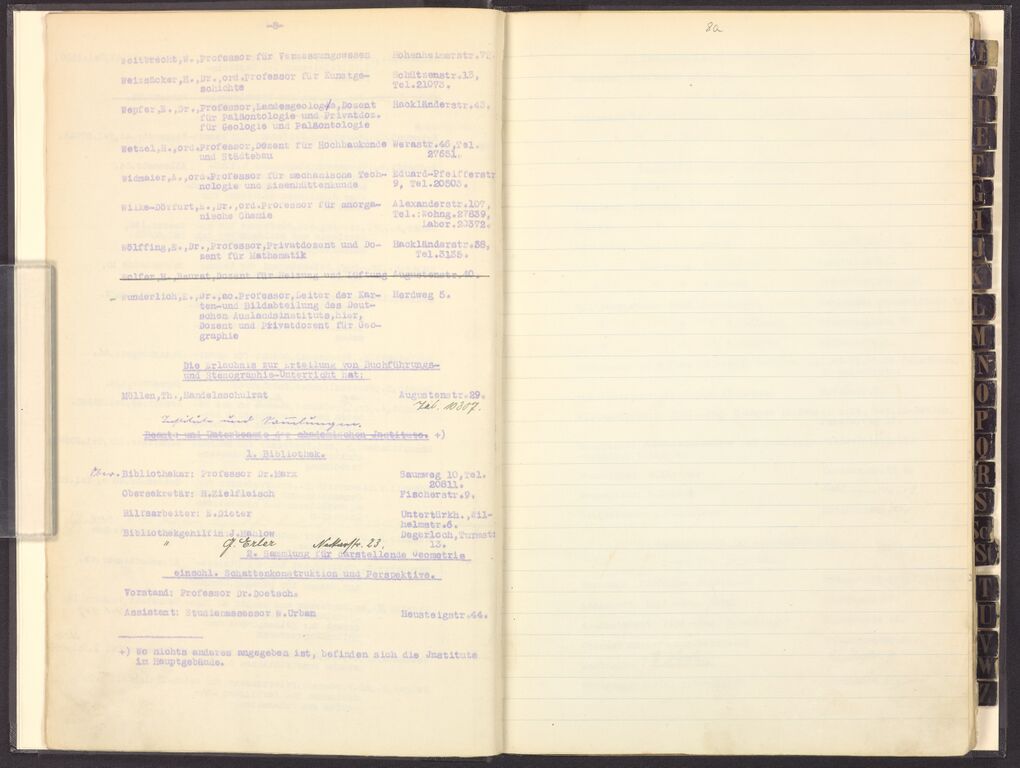 -8-
Weitbrecht,W.,Professor für Vermessungswesen Hohenheimerstr.
Weizsäcker,H.,Dr.,ord.Professor für Kunstge- Schützenstr.13,
schichte Tel.21073.
Wepfer,E.,Dr.,Professor,Landesgeologe,Dozent Hackländerstr.43.
für Paläontologie und Privatdoz.
für Geologie und Paläontologie
Wetzel,H.,ord.Professor,Dozent für Hochbaukunde Werastr.46,Tel.
und Städtebau 27681.
Widmaier,A.,ord.Professor für mechanische Tech- Eduard-Pfeifferstr
nologie und Eisenhüttenkunde 9, Tel.20503.
Wilke-Dörfurt,E.,Dr.,ord.Professor für anorga- Alexanderstr.107,
nische Chemie Tel.:Wohng.27839,
Labor.20372.
Wölffing,E.,Dr.,Professor,Privatdozent und Do- Hackländerstr.38,
zent für Mathematik Tel.3135.
Wolfer,H.,Baurat,Dozent für Heizung und Lüftung Augustenstr.40.
Wunderlich,E.,Dr.,ao.Professor,Leiter der Kar- Herdweg 5.
ten-und Bildabteilung des Deut-
schen Auslandsinstituts,hier,
Dozent und Privatdozent für Geo-
graphie
Die Erlaubnis zur Erteilung von Buchführungs-
und Stenographie-Unterricht hat:
Möllen,Th.,Handelsschulrat Augustenstr.29.
Tel. 10307.
Institute und Sammlungen.
Beamte und Unterbeamte der akademischen Institute. +)
1. Bibliothek.
Ober. Bibliothekar: Professor Dr.Marx Saumweg 10,Tel.
20811.
Obersekretär: H.Zielfleisch Fischerstr.9.
Hilfsarbeiter: E.Dieter Untertürkh.,Wil-
helmstr.6.
Bibliothekgehilfin:J.Mahlow Degerloch,Turmst
13.
" G. Erler Neckarstr. 23,
2. Sammlung für darstellende Geometrie
einschl. Schattenkonstruktion und Perspektive.
Vorstand: Professor Dr.Doetsch.
Assistent: Studienassessor W.Urban Heusteigstr.44.
+) Wo nichts anderes angegeben ist, befinden sich die Jnstitute
im Hauptgebäude.
8a
D
E
F
G
H
J
K
L
M
N
O
P
Q
R
S
Sch
St
T
U
V
W
Z